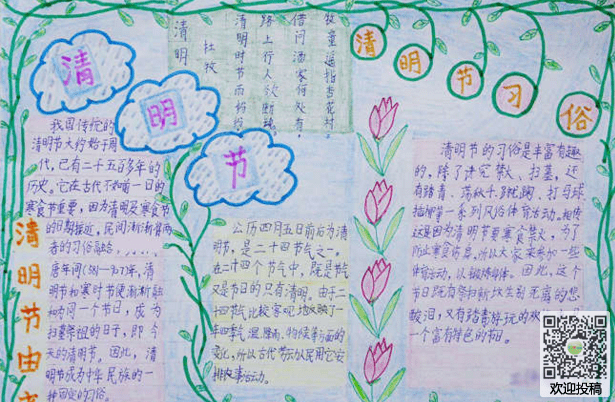 清明
节
清明
杜牧
清明时节雨纷纷，
路上行人欲断魂。
借问酒家何处有，
牧童遥指杏花村。
清明节习俗
我国传统的
清明节大约始于周
代，已有二千五百多年的
历史。它在古代不如前一日的
寒食节重要，因为清明及寒食节
的日期接近，民间渐渐将两
者的习俗融合，
唐年间
清明节和寒食节便渐渐融
和为同一个节日，成为
扫墓祭祖的日子，即今
天的清明节。因此，清
明节成为中华民族的一
种固定的习俗。
清明节由
公历四月五日前后为清
明节，是二十四节气之一。
在二十四个节气中，既是节气
又是节日的只有清明。由于二
十四节气比较客观地反映了一
年四季气温、降雨、物候等方面的
变化，所以古代劳动人民用它安
排农事活动。
清明节的习俗是丰富有趣
的，除了讲究禁火、扫墓，还
有踏青、荡秋千、蹴鞠、打马球、
插柳等一系列风俗体育活动。相传
这是因为清明节要寒食禁火，为了
防止寒食伤身，所以大家来参加一些
体育活动，以锻炼身体。因此，这个
节日既有祭扫新坟生别死离的悲
酸泪，又有踏青游玩的欢
一个富有特色的节日。
欢迎投稿